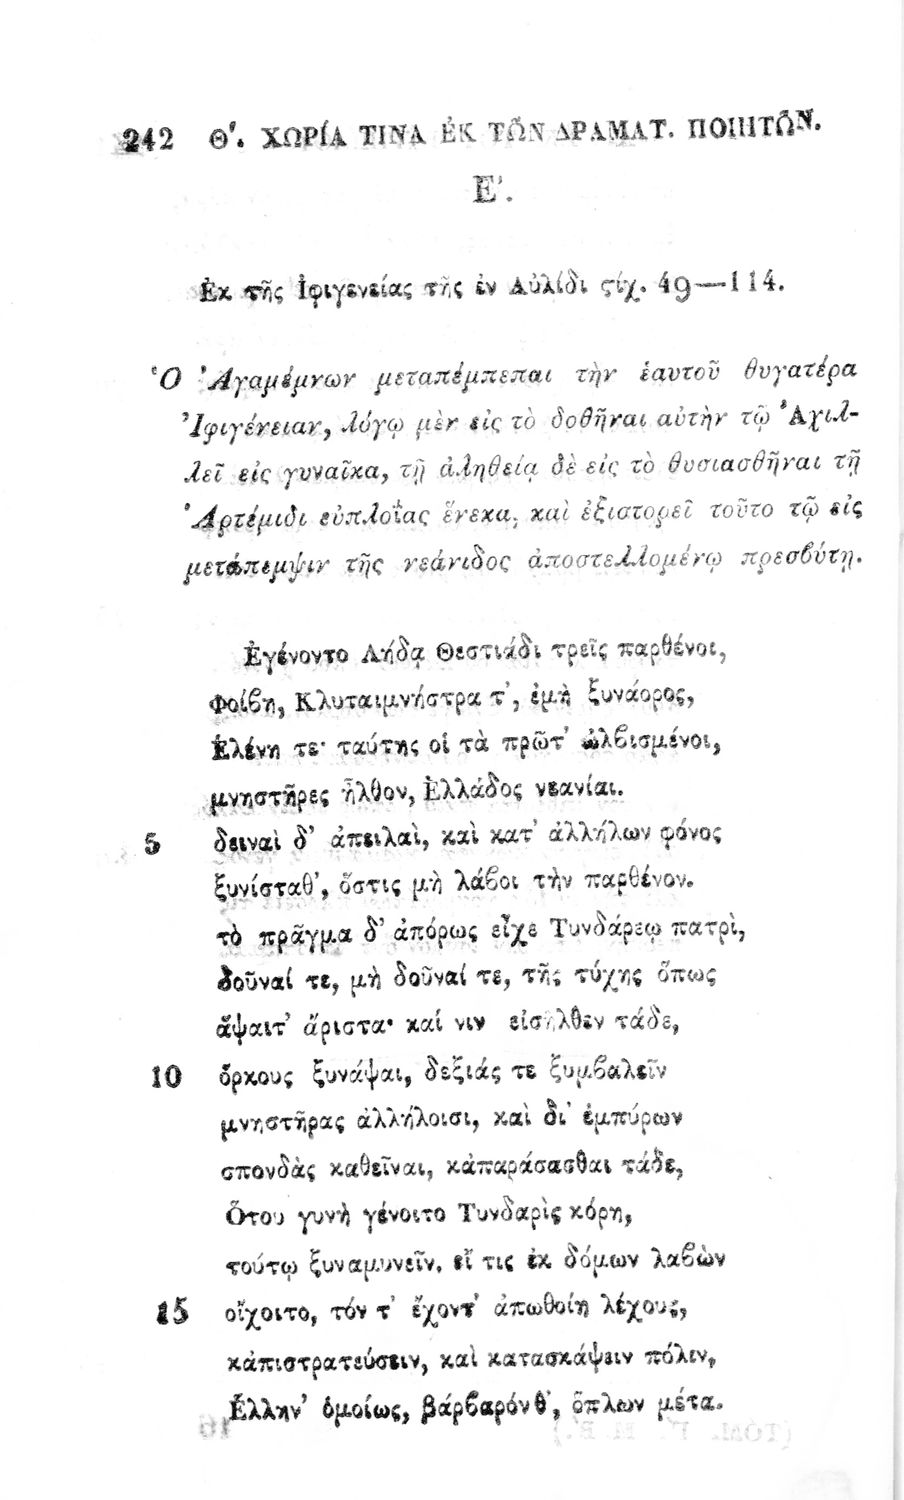 242 Θ'. ΧΩΡΊΑ ΤΙΝΑ ἘΚ ΤΩ͂Ν ΔΡΑΜΑΤ. ΠΟΙΗΤΩ͂Ν.
Ε'.
Ἐκ τῆς Ἰφιγενείας τῆς ἐν Αὐλίδι ϛίχ. 49—114.
Ὁ Ἀγαμέμνων μεταπέμπεπαι τὴν ἑαυτοῦ θυγατέρα
Ἰφιγένειαν, λόγῳ μὲν εἰς τὸ δοθῆναι αὐτὴν τῷ Ἀχιλ-
λεῖ εἰς γυναῖκα, τῇ ἀληθείᾳ δὲ εἰς τὸ θυσιασθῆναι τῇ
Ἀρτέμιδι εὐπλοΐας ἕνεκα, καὶ ἐξιστορεῖ τοῦτο τῷ εἰς
μετάπεμψιν τῆς νεάνιδος ἀποστελλομένῳ πρεσϐύτῃ.
Ἐγένοντο Λήδᾳ Θεστιάδι τρεῖς παρθένοι,
Φοίϐη, Κλυταιμνήστρα τ', ἐμὴ ξυνάορος,
Ἑλένη τε· ταύτης οἱ τὰ πρῶτ' ὠλϐισμένοι,
μνηστῆρες ἦλθον, Ἑλλάδος νεανίαι.
5 δειναὶ δ' ἀπειλαὶ, καὶ κατ' ἀλλήλων φόνος
ξυνίσταθ', ὅστις μὴ λάϐοι τὴν παρθένον.
τὸ πρᾶγμα δ' ἀπόρως εἶχε Τυνδάρεῳ πατρὶ,
δοῦναί τε, μὴ δοῦναί τε, τῆς τύχης ὅπως
ἅψαιτ' ἄριστα· καί νιν εἰσῆλθεν τάδε,
10 ὅρκους ξυνάψαι, δεξιάς τε ξυμϐαλεῖν
μνηστῆρας ἀλλήλοισι, καὶ δι' ἐμπύρων
σπονδὰς καθεῖναι, κἀπαράσασθαι τάδε,
Ὅτου γυνὴ γένοιτο Τυνδαρὶς κόρη,
τούτῳ ξυναμυνεῖν, εἴ τις ἐκ δόμων λαϐὼν
15 οἴχοιτο, τόν τ' ἔχοντ' ἀπωθοίη λέχους,
κἀπιστρατεύσειν, καὶ κατασκάψειν πόλιν,
Ἕλλην' ὁμοίως, βάρϐαρόν θ', ὅπλων μέτα.